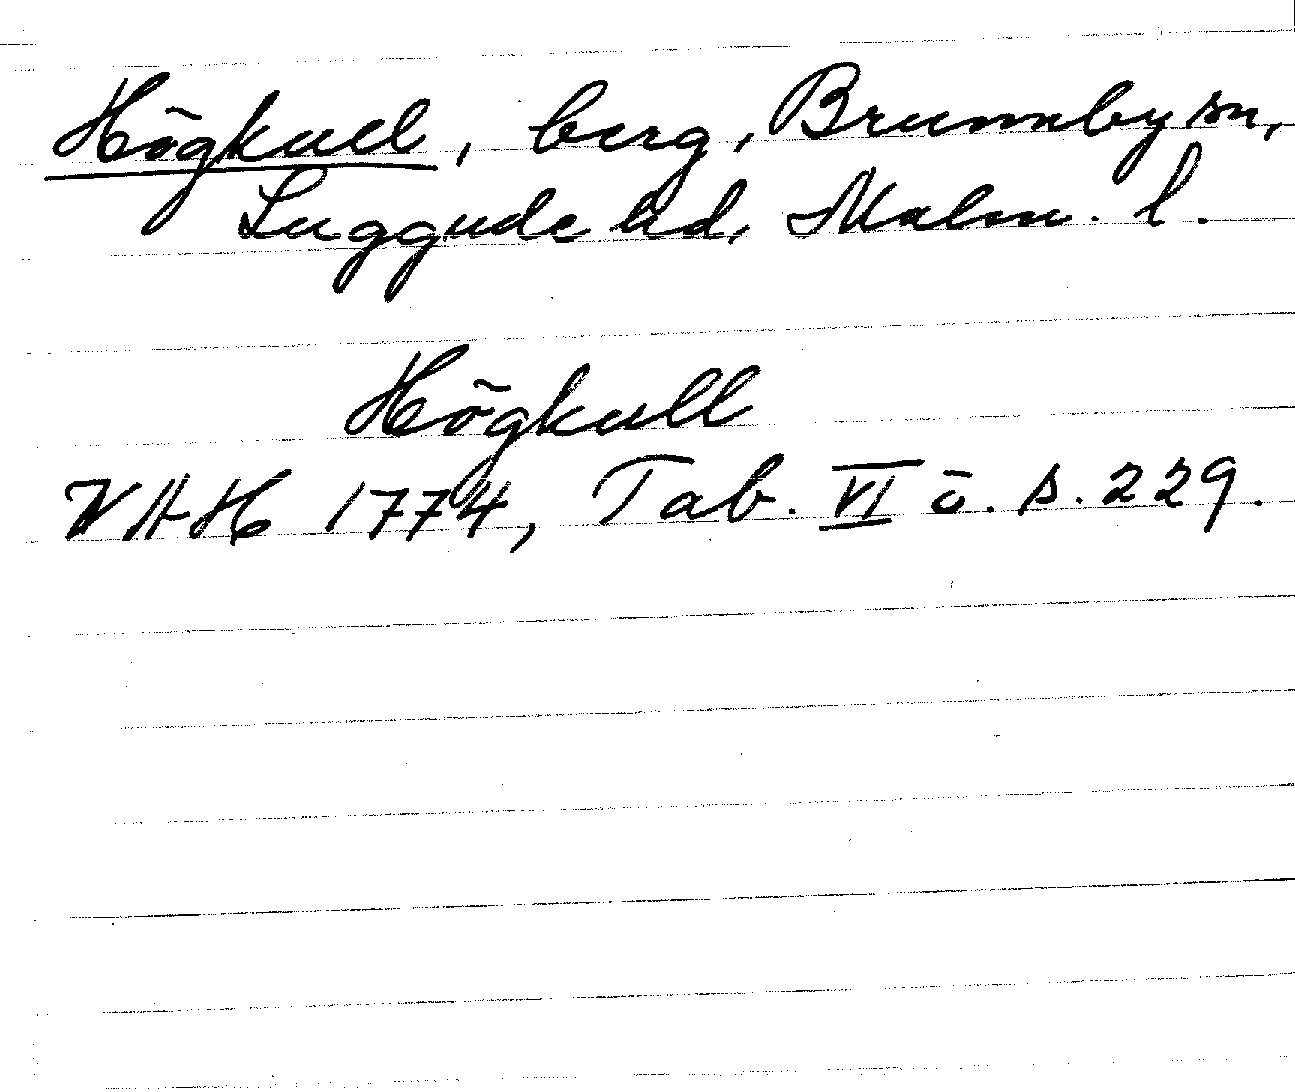 Högkull, berg, Brunnby sn,
Luggude hd, Malm. l.
Högkull
VAH 1774, Tab. VI ö. s. 229.